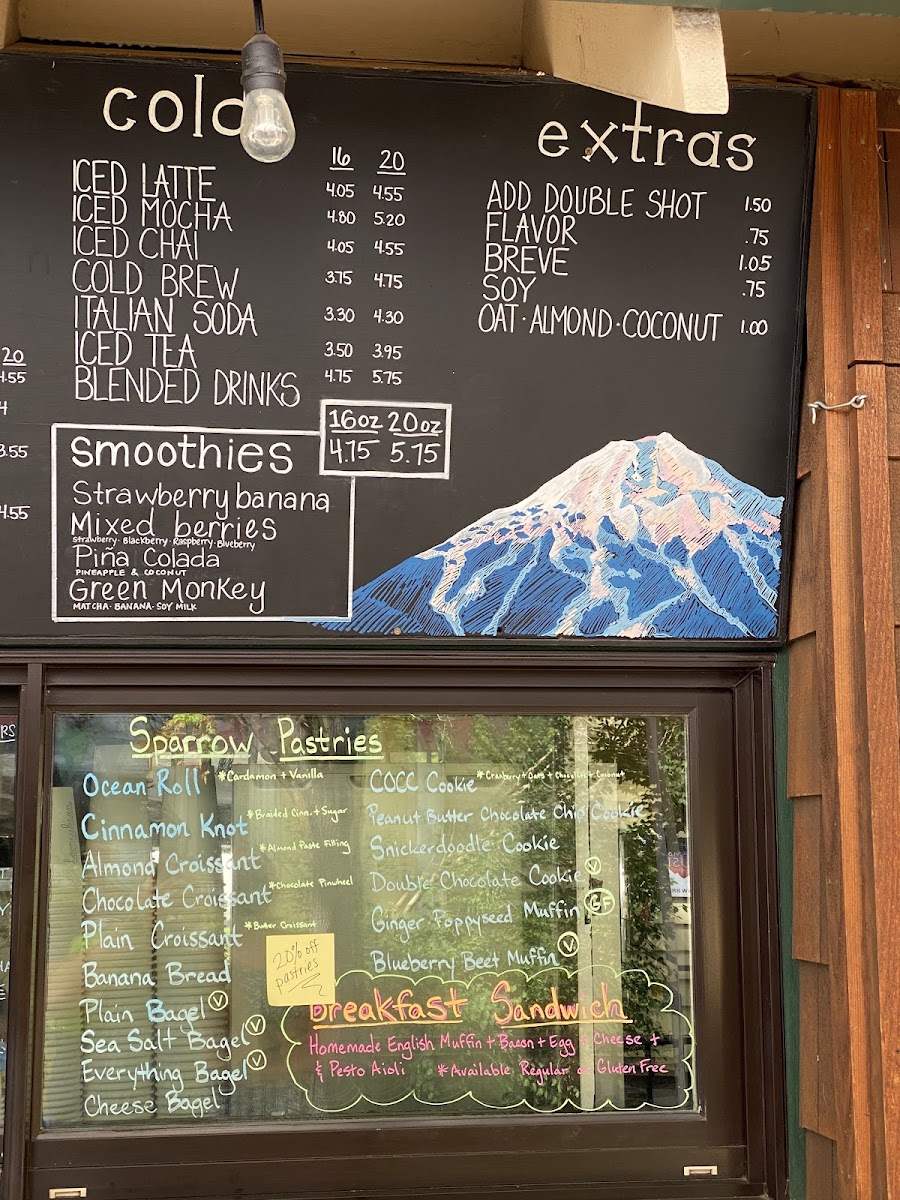 cold
16 20
ICED LATTE 4.05 4.55
ICED MOCHA 4.80 5.20
ICED CHAI 4.05 4.55
COLD BREW 3.75 4.75
ITALIAN SODA 3.30 4.30
ICED TEA 3.50 3.95
BLENDED DRINKS 4.75 5.75
extras
ADD DOUBLE SHOT 1.50
FLAVOR .75
BREVE 1.05
SOY .75
OAT · ALMOND · COCONUT 1.00
20
4.55
4
3.55
4.55
16oz 20oz
4.75 5.75
Smoothies
Strawberry banana
Mixed berries
Strawberry · Blackberry · Raspberry · Blueberry
Piña Colada
PINEAPPLE & COCONUT
Green Monkey
MATCHA · BANANA · SOY MILK
Sparrow Pastries
Ocean Roll *Cardamon + Vanilla
Cinnamon Knot *Braided Cinn. + Sugar
Almond Croissant *Almond Paste Filling
Chocolate Croissant *Chocolate Pinwheel
Plain Croissant *Butter Croissant
Banana Bread
Plain Bagel V
Sea Salt Bagel V
Everything Bagel V
Cheese Bagel
COCC Cookie *Cranberry + Oats + Chocolate + Coconut
Peanut Butter Chocolate Chip Cookie
Snickerdoodle Cookie
Double Chocolate Cookie V
Ginger Poppyseed Muffin GF
Blueberry Beet Muffin V
20% off
pastries
Breakfast Sandwich
Homemade English Muffin + Bacon + Egg + Cheese +
& Pesto Aioli *Available Regular or Gluten Free